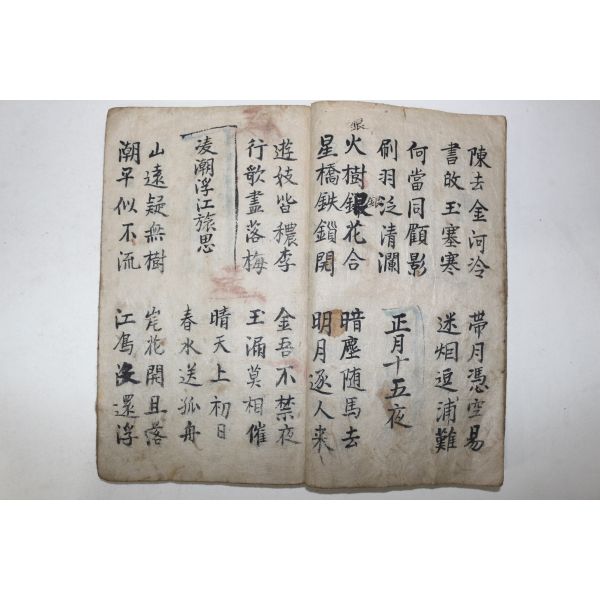 陳去金河冷
書敀玉塞寒
帶月憑空易
迷烟逗浦難
何當同顧影
刷羽泛清瀾
正月十五夜
銀
火樹銀花合
星橋鉄鎖開
暗塵随馬去
明月逐人来
遊妓皆穠李
行歌盡落梅
金吾不禁夜
玉漏莫相催
凌潮浮江旅思
晴天上初日
春水送孤舟
山遠疑無樹
潮平似不流
岸花開且落
江鳥没還浮